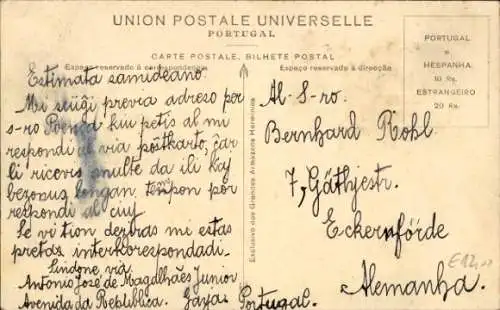 UNION POSTALE UNIVERSELLE
PORTUGAL
CARTE POSTALE, BILHETE POSTAL
Espaço reservado á correspondencia
Espaço reservado á direcção
PORTUGAL
E
HESPANHA
10 Rs.
ESTRANGEIRO
20 Rs.
Estimata samideano
Mi sciiĝi previa adreso por
s-ro kiu petis al mi
respondi al via postkarto, ĉar
li ricevis multe da ili kaj
bezonus longan tempon por
respondi al ciuj.
Se vi tion deziras mi estas
pretaz interkorespondadi.
Sindone via
Antonio José de Magalhães Junior
Avenida da Republica. Gaya. Portugal.
Exclusivo dos Grandes Armazens Herminios
Al-S-ro.
Bernhard Rohl
7, Gäthjestr.
Eckernföide
Alemanha.
E12,-